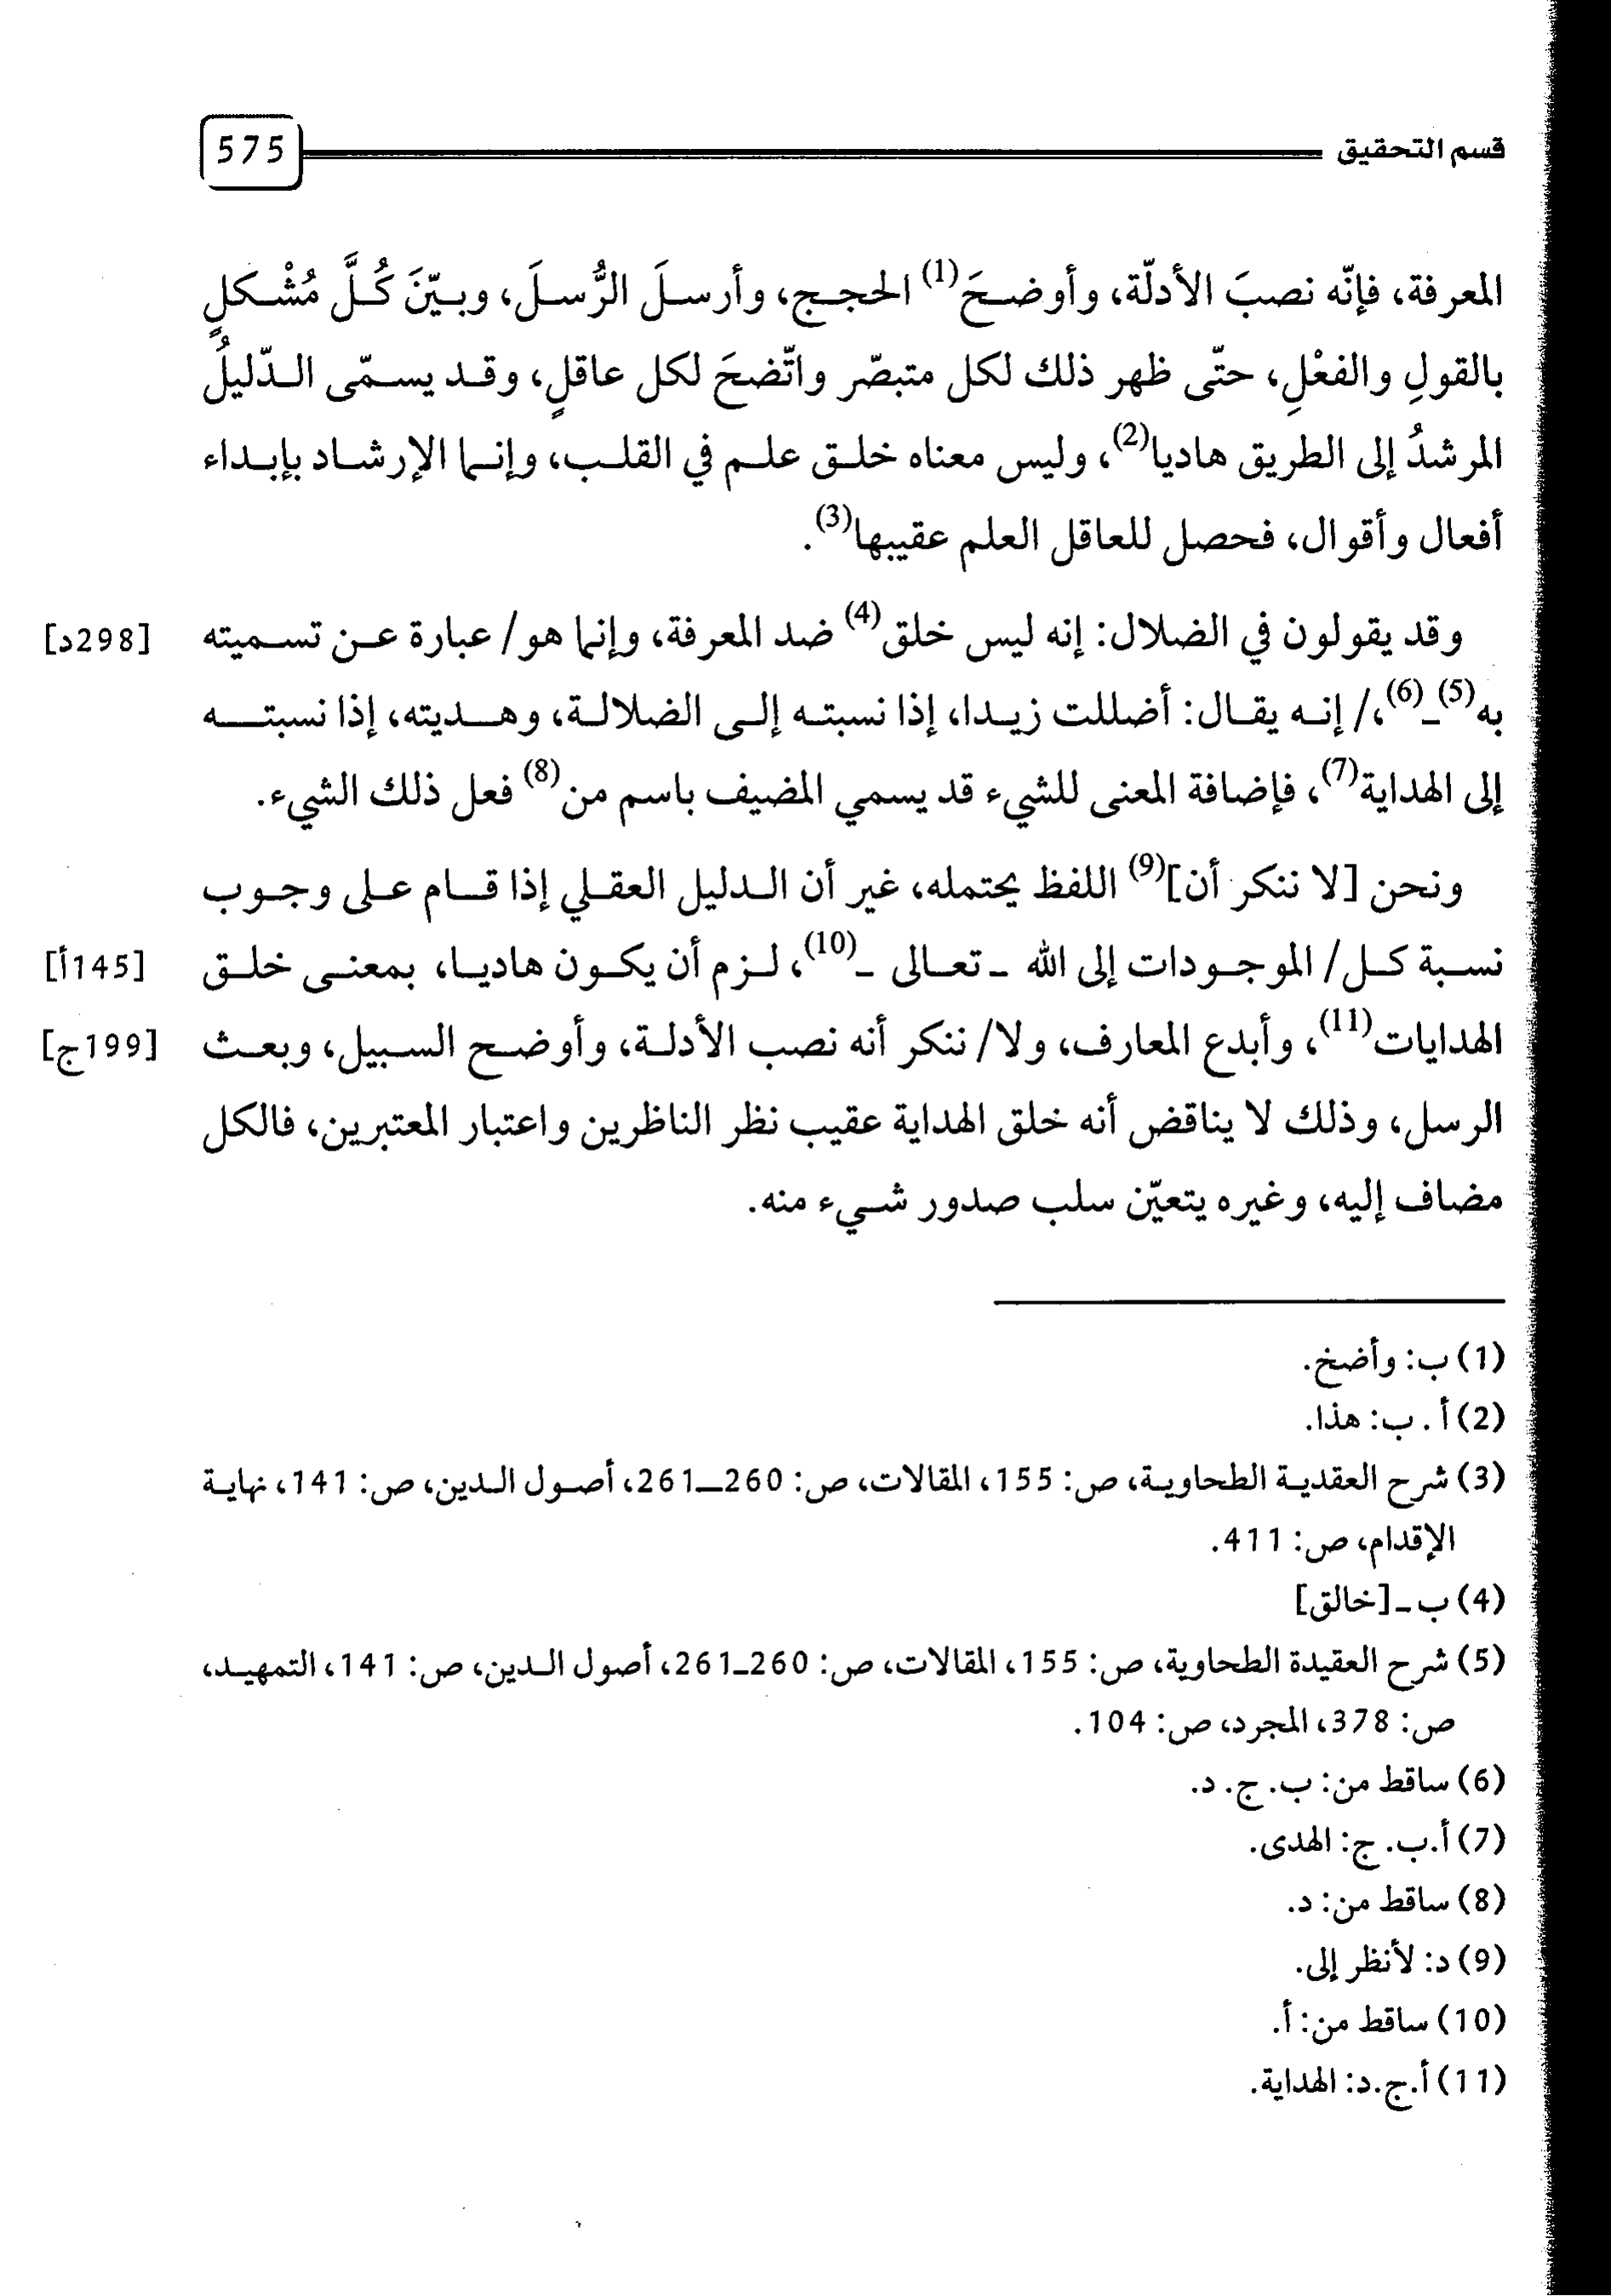 قسم التحقيق 575
المعرفة، فإنّه نصبَ الأدلّة، وأوضحَ(1) الحجج، وأرسلَ الرُّسلَ، وبيّنَ كُلَّ مُشْكلٍ
بالقولِ والفعْلِ، حتّى ظهر ذلك لكل متبصّر واتّضحَ لكل عاقلٍ، وقد يسمّى الدّليلُ
المرشدُ إلى الطريق هاديا(2)، وليس معناه خلق علم في القلب، وإنما الإرشاد بإبداء
أفعال وأقوال، فحصل للعاقل العلم عقيبها(3).
وقد يقولون في الضلال: إنه ليس خلق(4) ضد المعرفة، وإنما هو/ عبارة عن تسميته [298د]
به(5)ـ(6)،/ إنه يقال: أضللت زيدا، إذا نسبته إلى الضلالة، وهديته، إذا نسبته
إلى الهداية(7)، فإضافة المعنى للشيء قد يسمي المضيف باسم من(8) فعل ذلك الشيء.
ونحن [لا ننكر أن](9) اللفظ يحتمله، غير أن الدليل العقلي إذا قام على وجوب
نسبة كل/ الموجودات إلى الله ـ تعالى ـ(10)، لزم أن يكون هاديا، بمعنى خلق [145أ]
الهدايات(11)، وأبدع المعارف، ولا/ ننكر أنه نصب الأدلة، وأوضح السبيل، وبعث [199ج]
الرسل، وذلك لا يناقض أنه خلق الهداية عقيب نظر الناظرين واعتبار المعتبرين، فالكل
مضاف إليه، وغيره يتعيّن سلب صدور شيء منه.
(1) ب: وأضخ.
(2) أ. ب: هذا.
(3) شرح العقدية الطحاوية، ص: 155، المقالات، ص: 260ـ261، أصول الدين، ص: 141، نهاية
الإقدام، ص: 411.
(4) ب ـ [خالق]
(5) شرح العقيدة الطحاوية، ص: 155، المقالات، ص: 260ـ261، أصول الدين، ص: 141، التمهيد،
ص: 378، المجرد، ص: 104.
(6) ساقط من: ب. ج. د.
(7) أ.ب. ج: الهدى.
(8) ساقط من: د.
(9) د: لأنظر إلى.
(10) ساقط من: أ.
(11) أ.ج.د: الهداية.